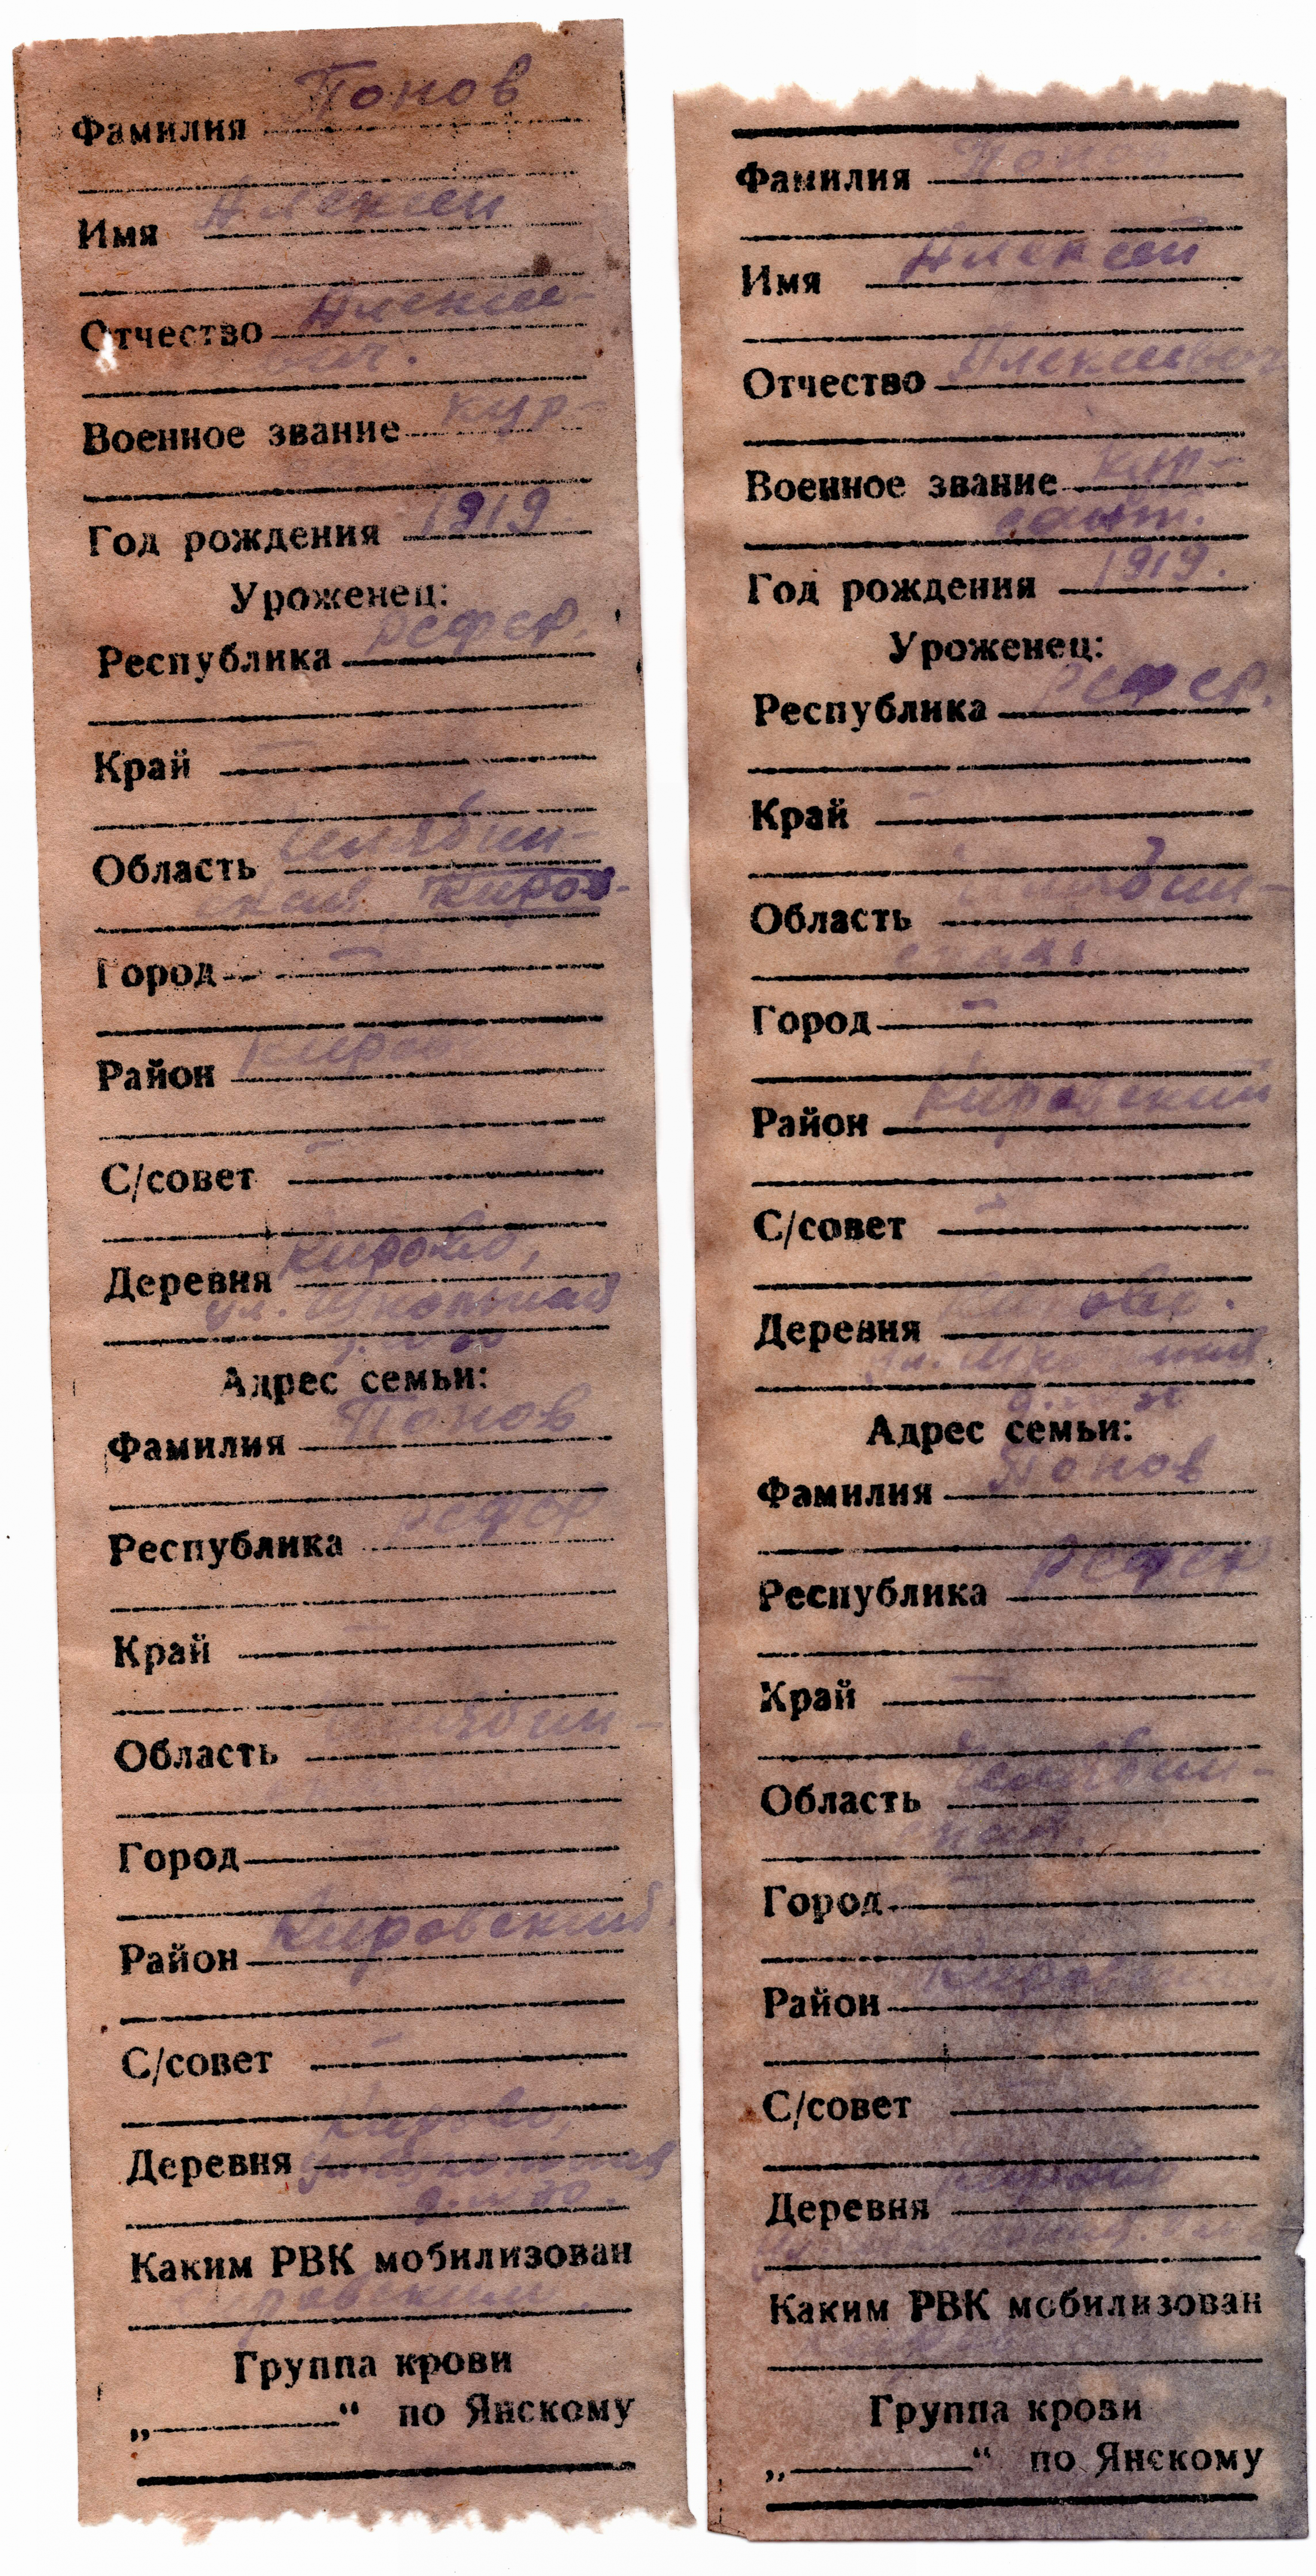 Понов
Фамилия
Алексей
Имя
Алексее-
Отчество
вич.
кур-
Военное звание
1919
Год рождения
Уроженец:
РСФСР.
Республика
Край
Челябин-
Область
ской Киров-
Город
Киров
Район
С/совет
Кирово,
Деревня
ул. Школьная
Адрес семьи:
Понов
Фамилия
РСФСР
Республика
Край
Челябин-
Область
Город
Кировский
Район
С/совет
Кирово,
Деревня
Каким РВК мобилизован
ровским
Группа крови
„ “ по Янскому
Понов
Фамилия
Алексей
Имя
Алексеевич
Отчество
кур-
Военное звание
сант.
1919.
Год рождения
Уроженец:
РСФСР.
Республика
Край
Челябин-
Область
ская
Город
Кировский
Район
С/совет
Кирово.
Деревня
ул. Школьная
Адрес семьи:
Понов
Фамилия
РСФСР
Республика
Край
Челябин-
Область
ская.
Город
Киров
Район
С/совет
Кирово
Деревня
Каким РВК мобилизован
Группа крови
„ “ по Янскому